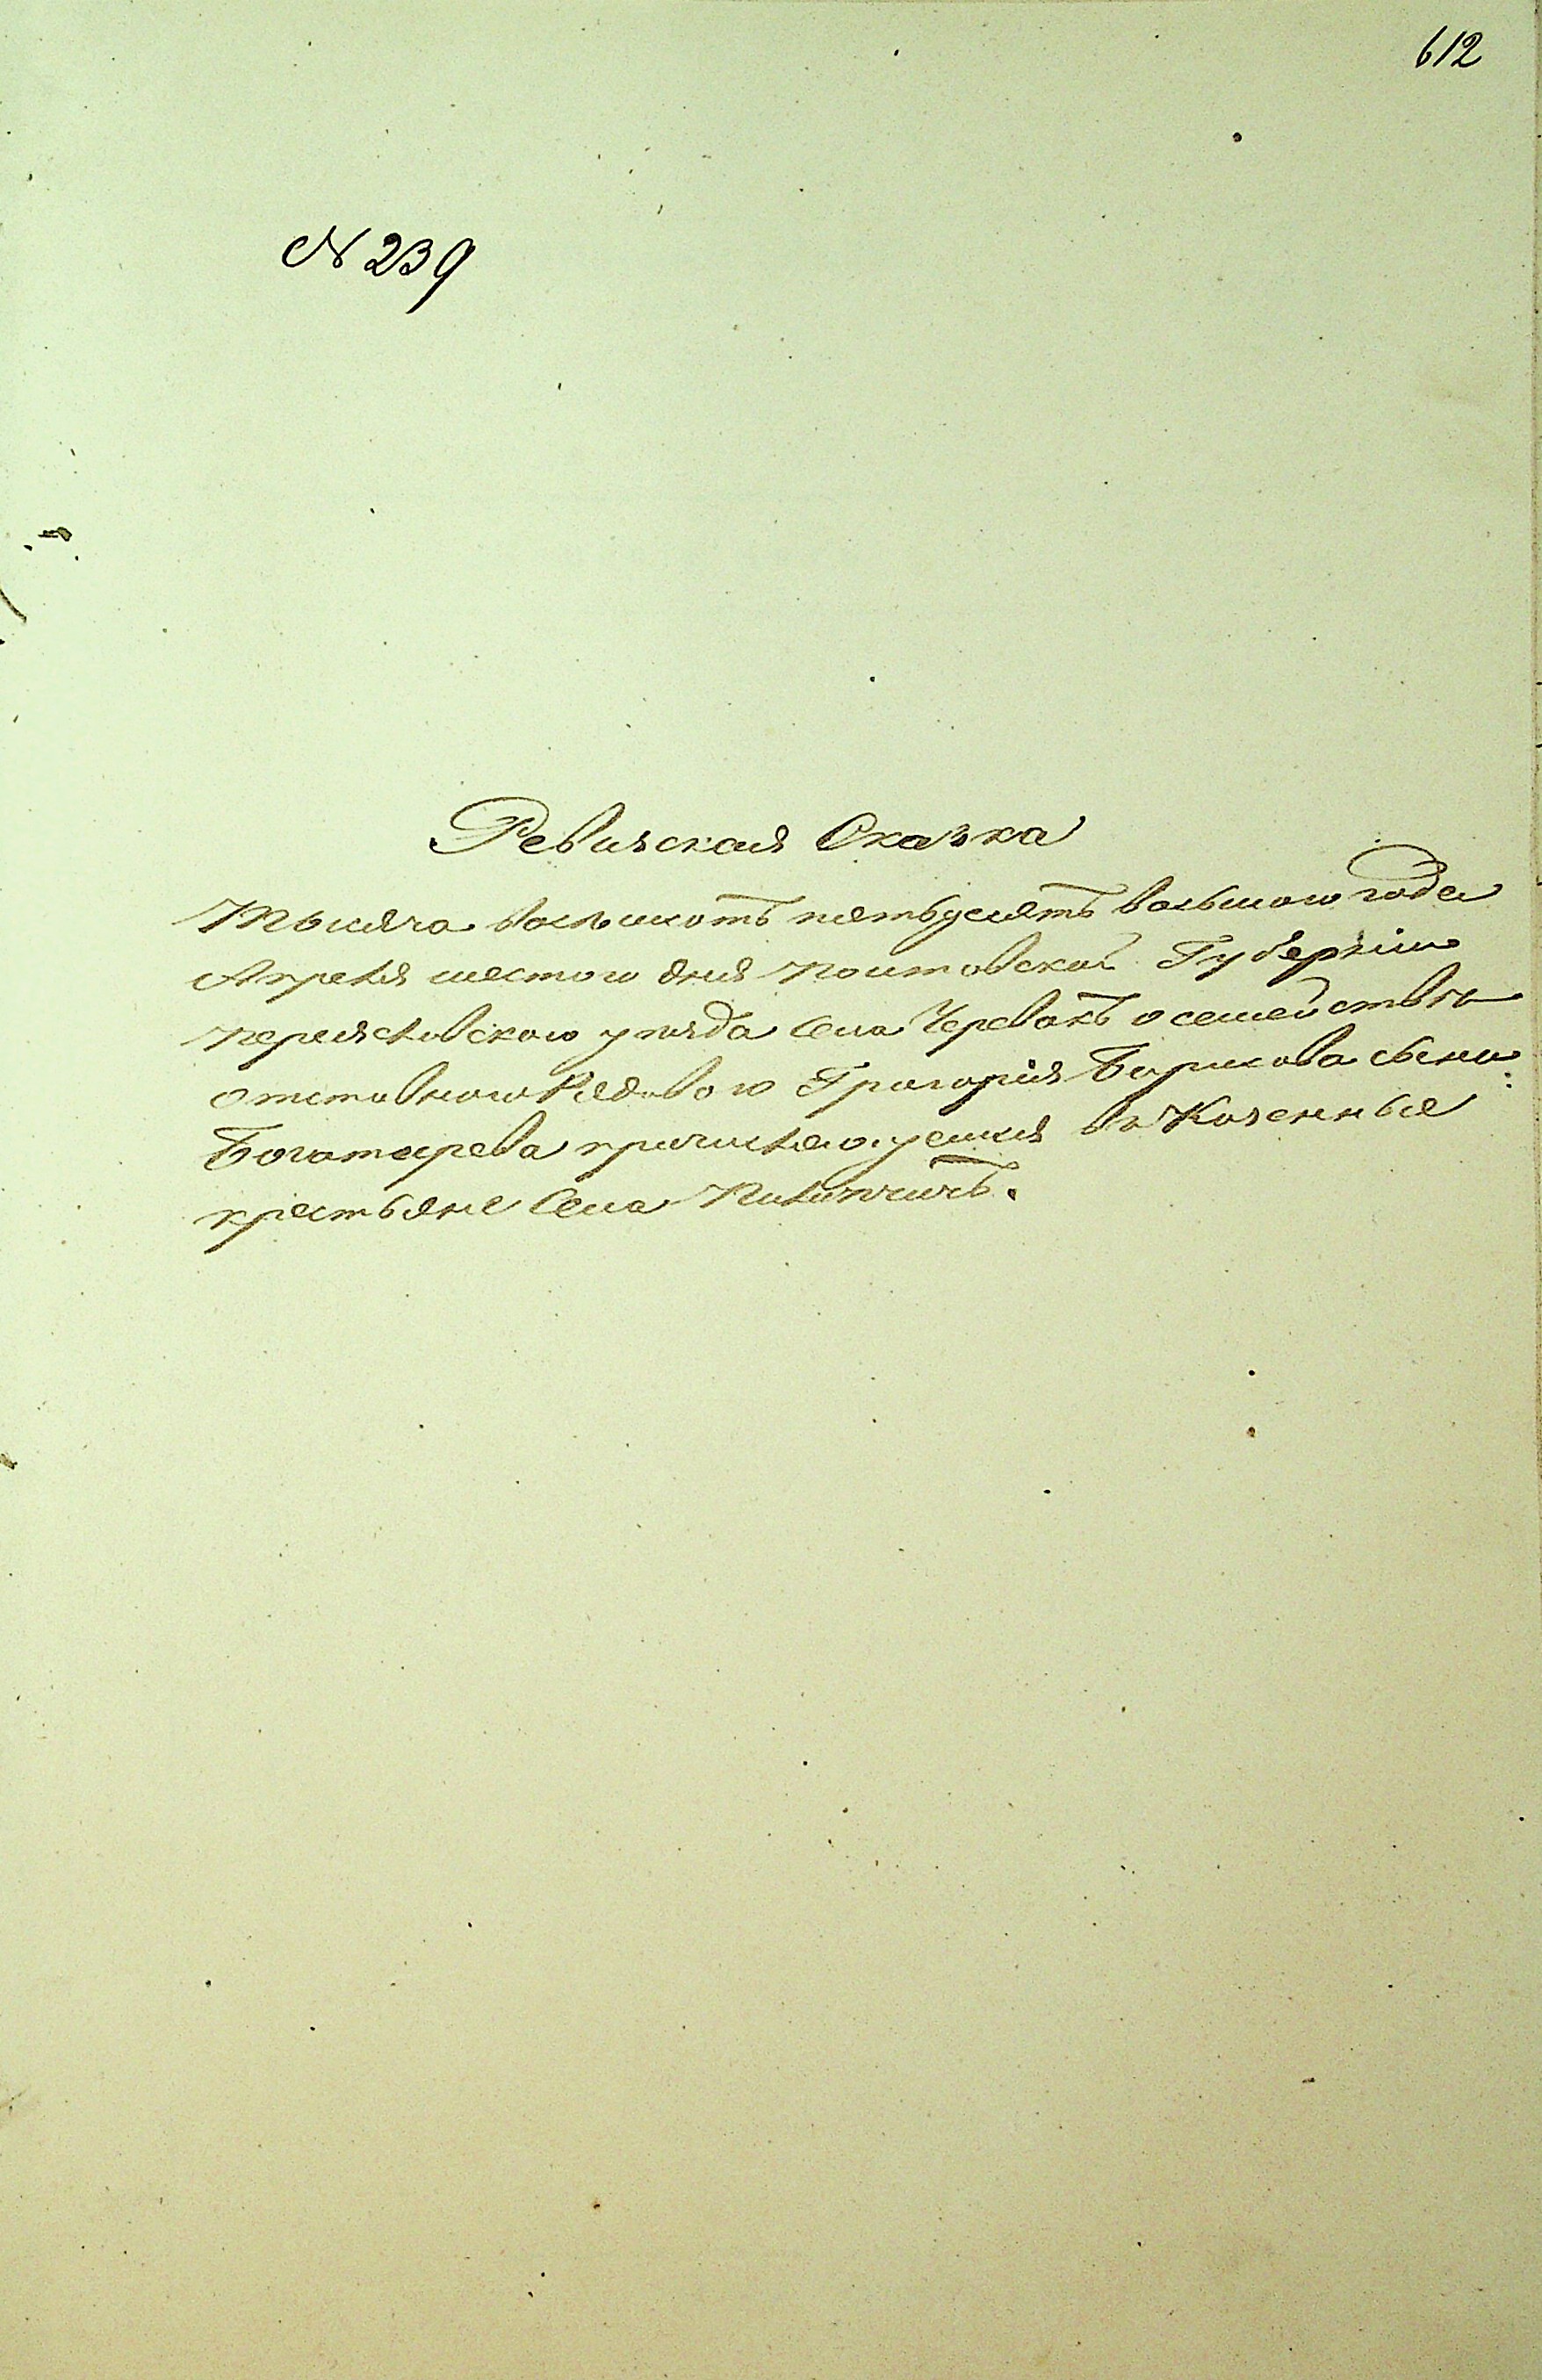 612
N 239
Ревизская Сказка
Тысяча восемсотъ пятьдесятъ восьмого года
Апреля шестого дня Полтавской Губерніи
Переясловского уѣзда Села Черевакъ о семействѣ
отставного Рядового Григорія Борисова сына
Богатырева причисляющемся въ Казенные
крестьяне Села